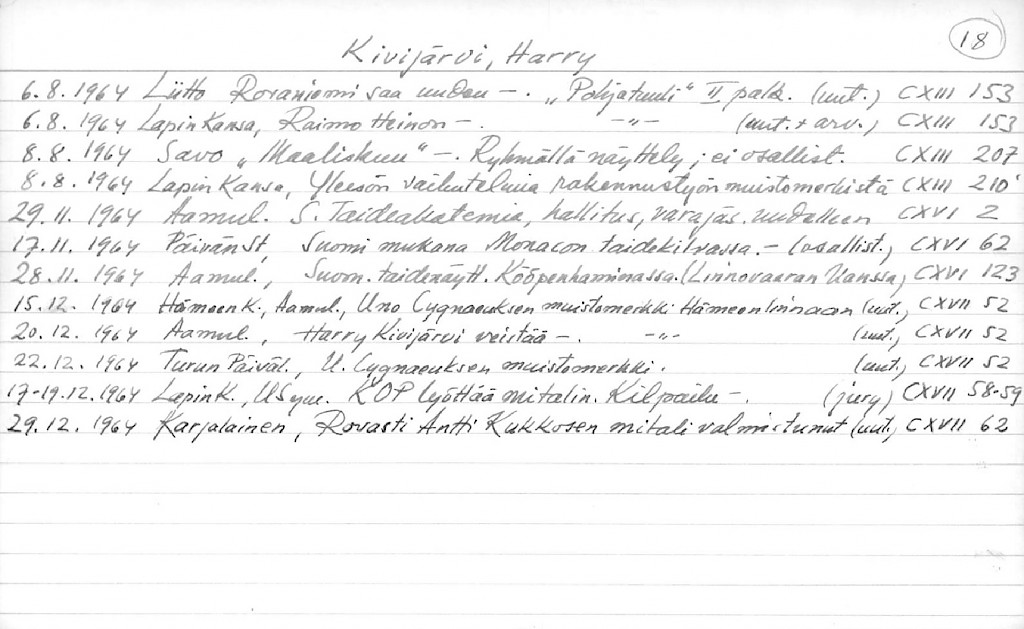 18
Kivijärvi, Harry
6.8.1964 Liitto Rovaniemi saa uuden –. „Pohjatuuli" II palk. (uut.) CXIII 153
6.8.1964 Lapin Kansa, Raimo Heinon –. –"– (uut. + arv.) CXIII 153
8.8.1964 Savo „Maaliskuu" –. Ryhmällä näyttely; ei osallist. CXIII 207
8.8.1964 Lapin Kansa, Yleisön vaikutelmia rakennustyön muistomerkistä CXIII 210
29.11.1964 Aamul. S. Taideakatemia, hallitus, varajäs. uudelleen CXVI 2
17.11.1964 Päivän S, Suomi mukana Monacon taidekilvassa. – (osallist.) CXVI 62
28.11.1964 Aamul., Suom. taidenäytt. Kööpenhaminassa. (Linnovaaran kanssa) CXVI 123
15.12.1964 Hämeen K., Aamul., Uno Cygnaeuksen muistomerkki Hämeenlinnaan (uut.) CXVII 52
20.12.1964 Aamul., Harry Kivijärvi veistää –. –"– (uut.) CXVII 52
22.12.1964 Turun Päiväl., U. Cygnaeuksen muistomerkki. (uut.) CXVII 52
17-19.12.1964 Lapin K., USuom. KOP lyöttää mitalin. Kilpailu –. (jury) CXVII 58-59
29.12.1964 Karjalainen, Rovasti Antti Kukkosen mitali valmistunut (uut.) CXVII 62